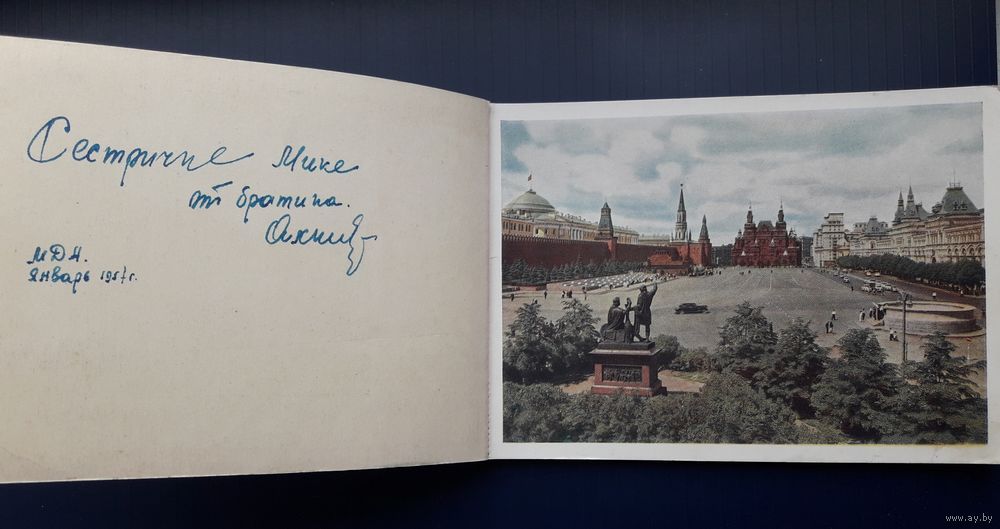 Сестричке Мике
от братика.
МДН.
Январь 1957г.
www.ay.by